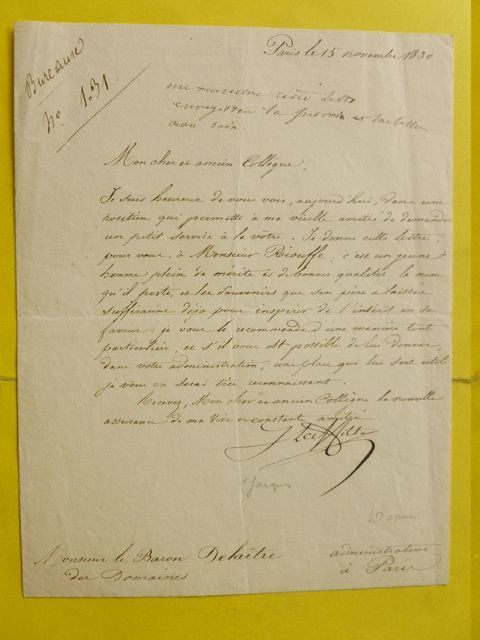 Paris le 15 novembre 1830
Bureaux
No. 131.
me remettre cette lettre
enregistrer la
avec soin
Mon cher et ancien Collègue,
Je suis heureux de vous voir, aujourd'hui, dans une
position qui permette à ma vieille amitié de demander
un petit service à la vôtre. Je donne cette lettre
pour vous, à Monsieur Riouffe; c'est un jeune
homme plein de mérite et de bonnes qualités. le nom
qu'il porte, et les souvenirs que son père a laissés
suffiraient déjà pour inspirer de l'intérêt en sa
faveur: je vous le recommande d'une manière tout
particulière, et s'il vous est possible de lui donner,
dans votre administration, une place qui lui soit utile
je vous en serai très reconnaissant.
Recevez, Mon cher et ancien Collègue la nouvelle
assurance de ma vive et constante amitié
J Laffitte
Jacques
Monsieur le Baron Delaître administrateur
des Domaines à Paris